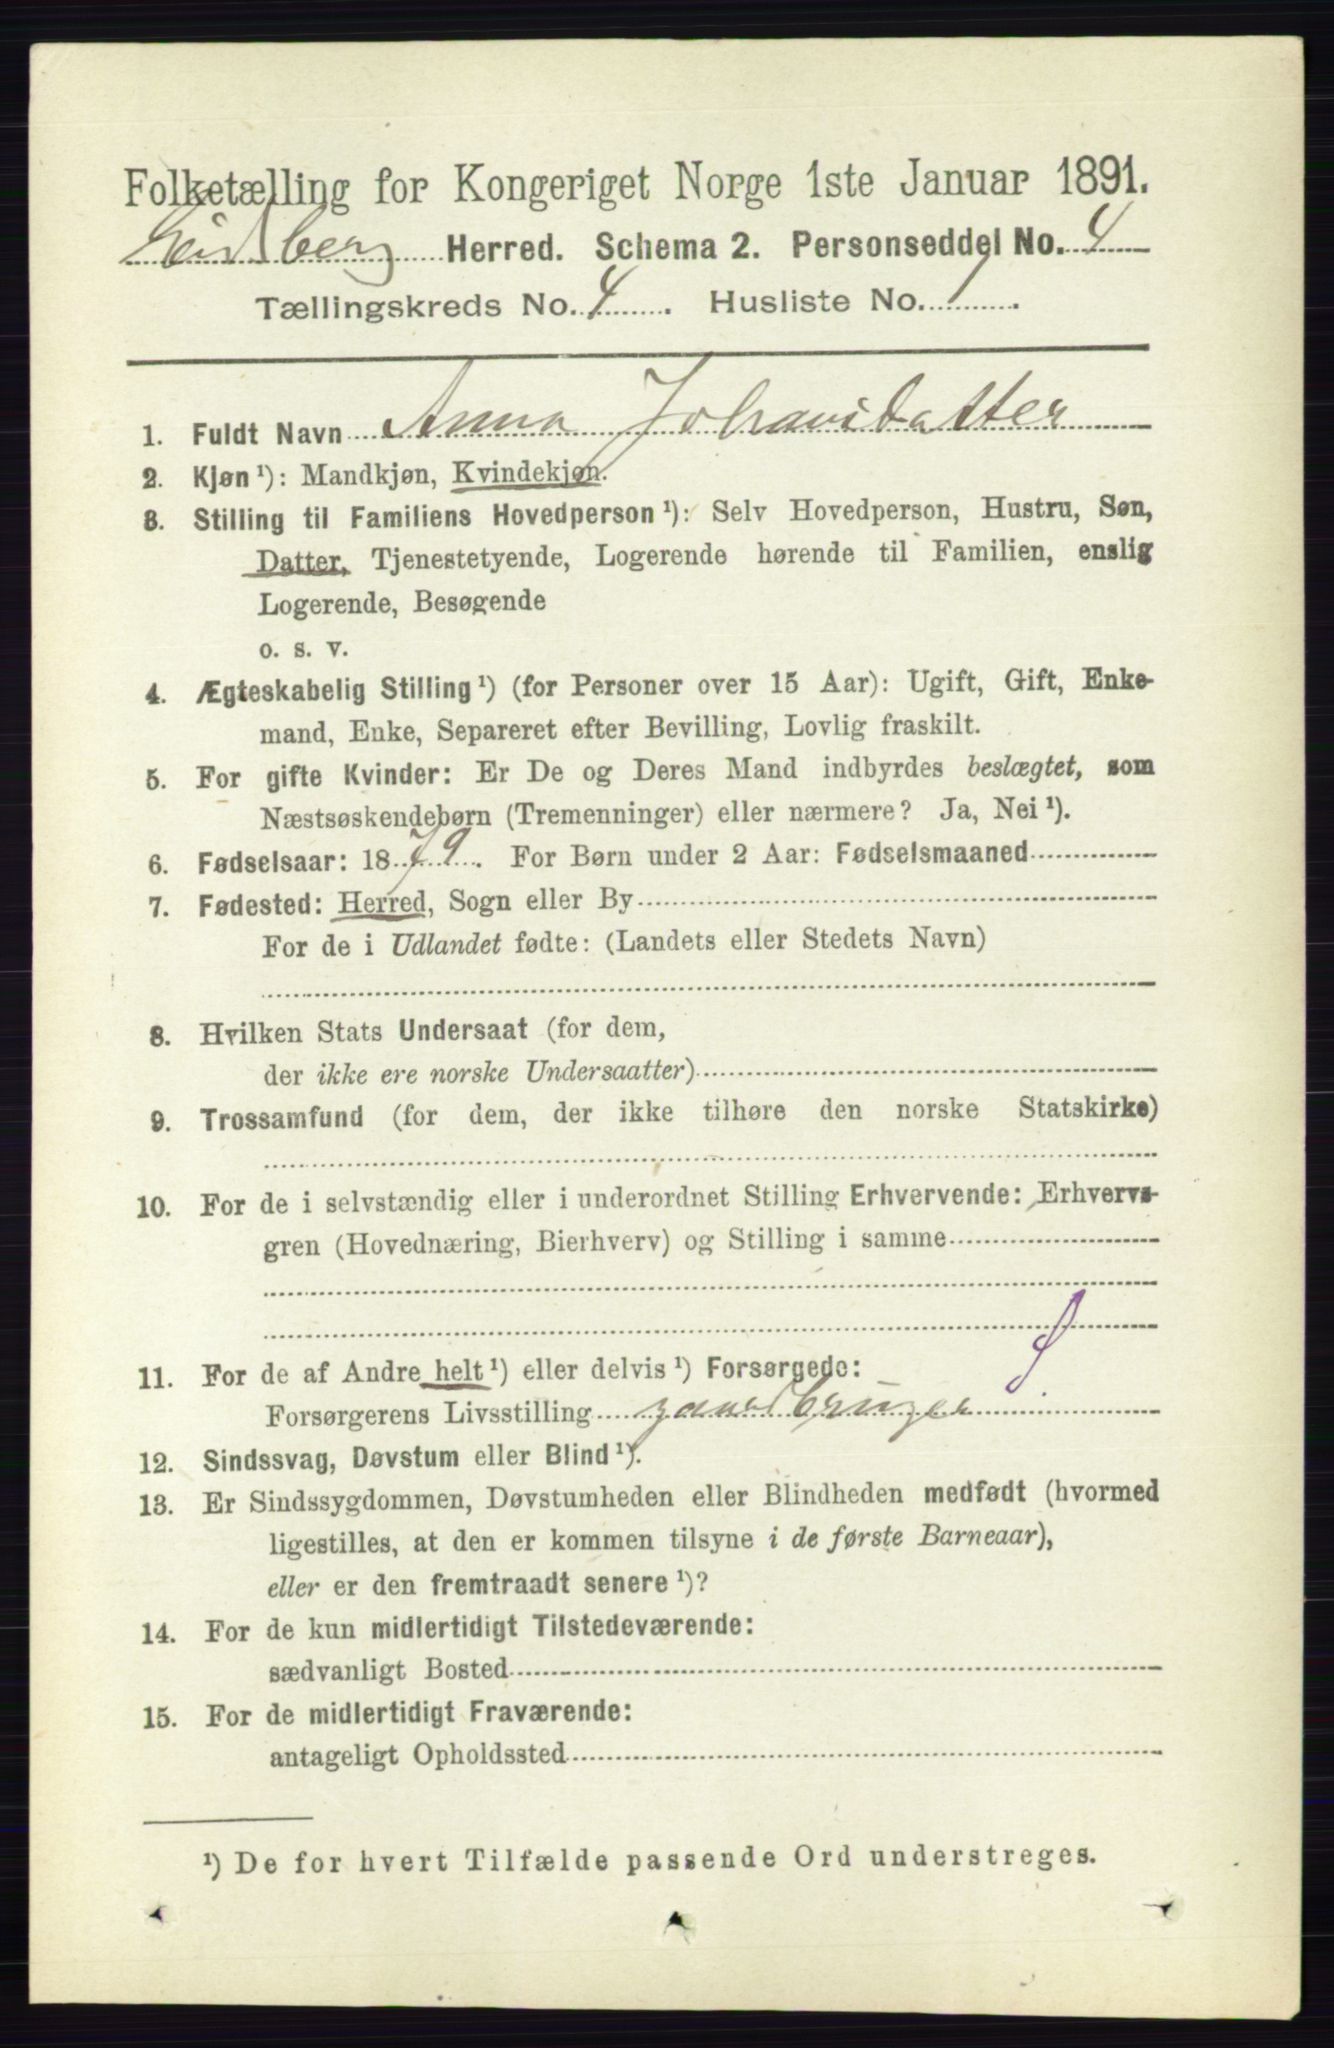 Folketælling for Kongeriget Norge 1ste Januar 1891.
Eidsberg Herred. Schema 2. Personseddel No. 4
Tællingskreds No. 4. Husliste No. 1.
1. Fuldt Navn Anna Johansdatter
2. Kjøn ¹): Mandkjøn, Kvindekjøn.
3. Stilling til Familiens Hovedperson ¹): Selv Hovedperson, Hustru, Søn,
Datter, Tjenestetyende, Logerende hørende til Familien, enslig
Logerende, Besøgende
o. s. v.
4. Ægteskabelig Stilling ¹) (for Personer over 15 Aar): Ugift, Gift, Enke-
mand, Enke, Separeret efter Bevilling, Lovlig fraskilt.
5. For gifte Kvinder: Er De og Deres Mand indbyrdes beslægtet, som
Næstsøskendebørn (Tremenninger) eller nærmere? Ja, Nei ¹).
6. Fødselsaar: 1879. For Børn under 2 Aar: Fødselsmaaned
7. Fødested: Herred, Sogn eller By
For de i Udlandet fødte: (Landets eller Stedets Navn)
8. Hvilken Stats Undersaat (for dem,
der ikke ere norske Undersaatter)
9. Trossamfund (for dem, der ikke tilhøre den norske Statskirke)
10. For de i selvstændig eller i underordnet Stilling Erhvervende: Erhvervs-
gren (Hovednæring, Bierhverv) og Stilling i samme
11. For de af Andre helt ¹) eller delvis ¹) Forsørgede:
Forsørgerens Livsstilling gaardbruger
12. Sindssvag, Døvstum eller Blind ¹).
13. Er Sindssygdommen, Døvstumheden eller Blindheden medfødt (hvormed
ligestilles, at den er kommen tilsyne i de første Barneaar),
eller er den fremtraadt senere ¹)?
14. For de kun midlertidigt Tilstedeværende:
sædvanligt Bosted
15. For de midlertidigt Fraværende:
antageligt Opholdssted
¹) De for hvert Tilfælde passende Ord understreges.